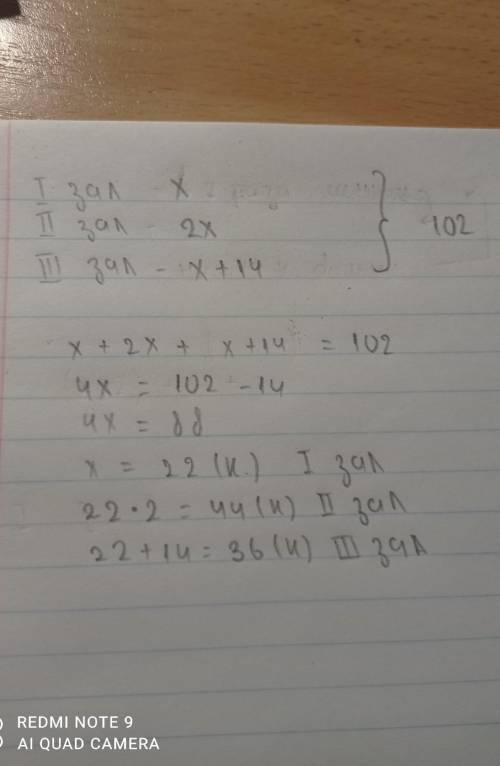 I зал - x
II зал - 2x
III зал - x + 14
} 102
x + 2x + x + 14 = 102
4x = 102 - 14
4x = 88
x = 22 (к.) I зал
22 • 2 = 44 (к) II зал
22 + 14 = 36 (к) III зал
REDMI NOTE 9
AI QUAD CAMERA